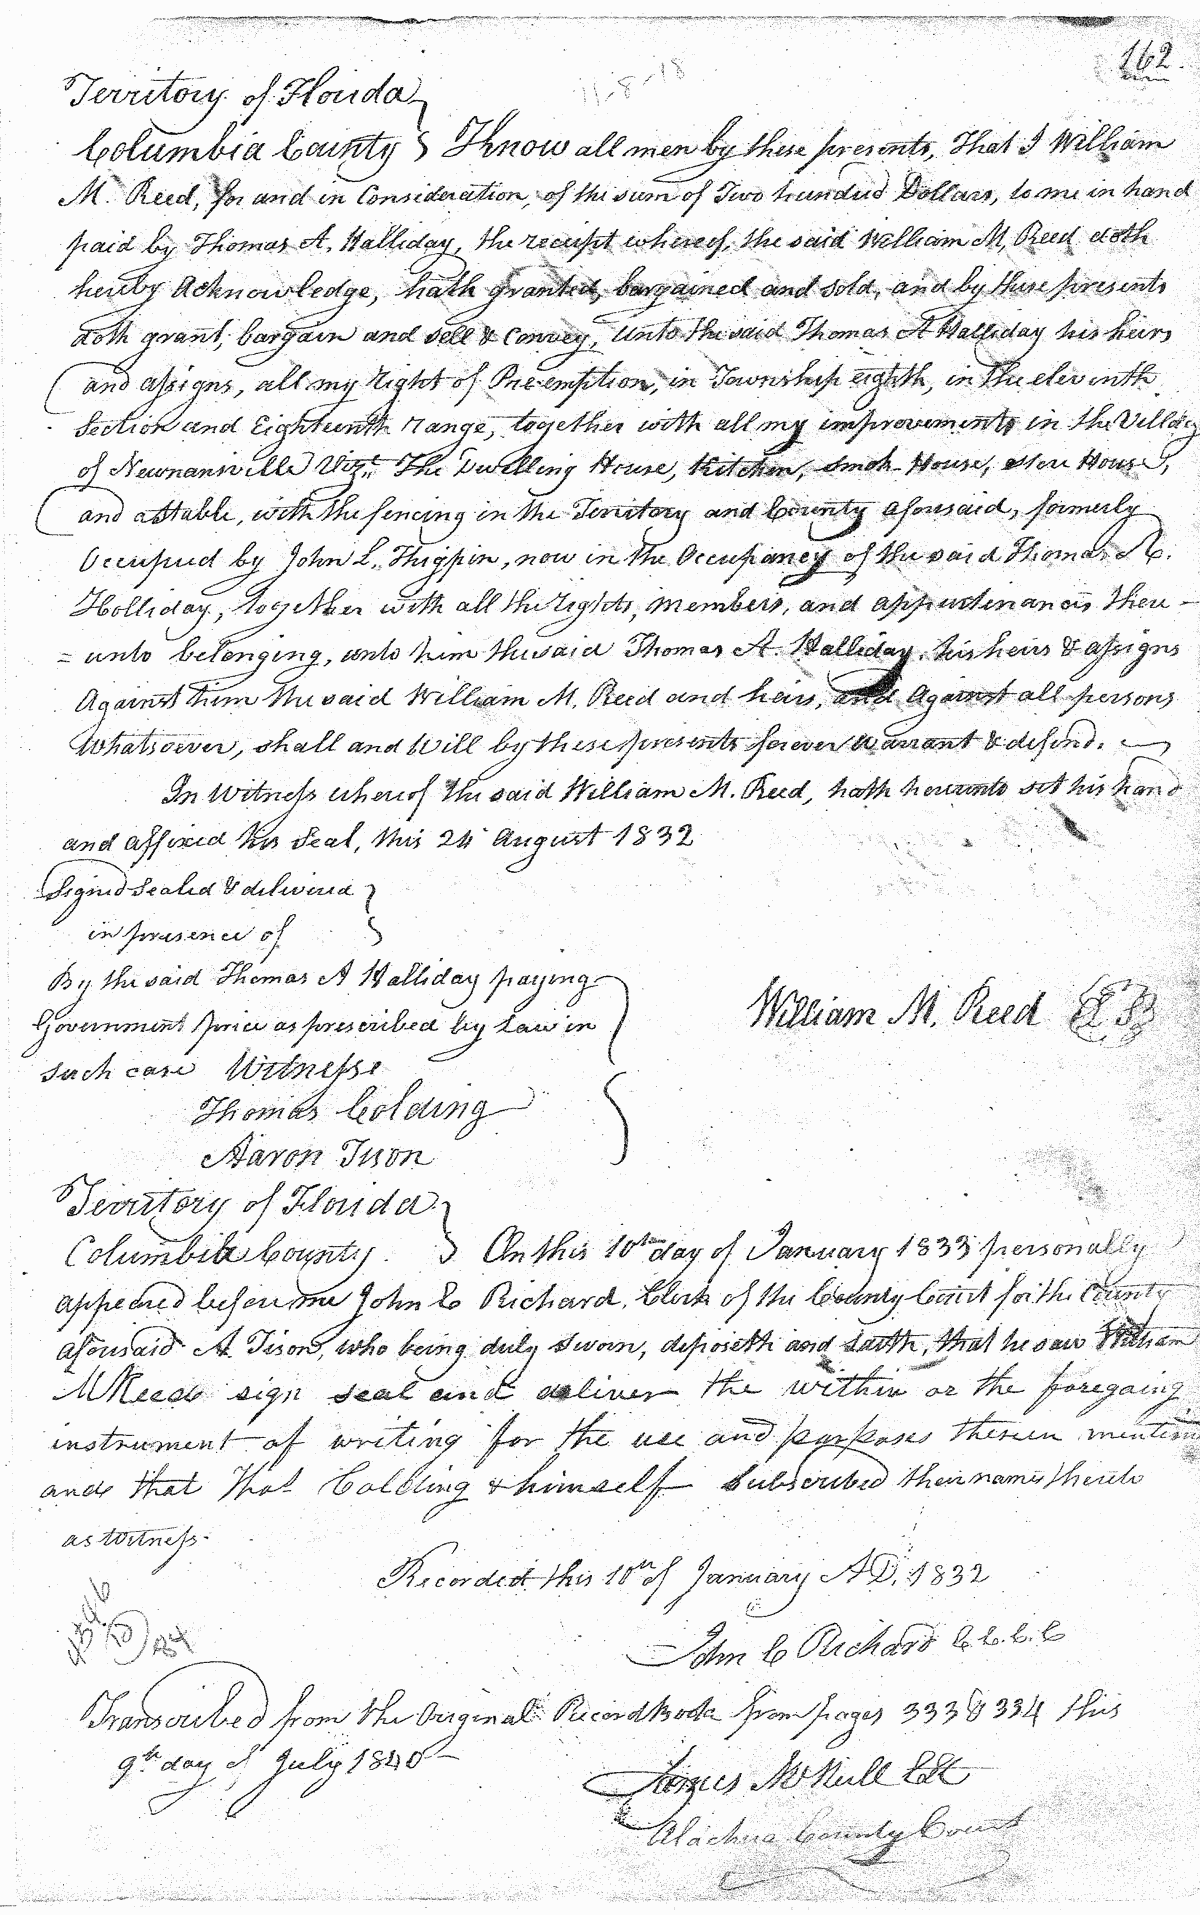 162.
11-8-18
Territory of Florida
Columbia County } Know all men by these presents, That I William
M. Reed, for and in Consideration, of the sum of Two hundred Dollars, to me in hand
paid by Thomas A. Halliday, the receipt whereof, the said William M. Reed doth
hereby Acknowledge, hath granted, bargained and sold, and by these presents
doth grant, bargain and sell & Convey, Unto the said Thomas A Halliday his heirs
and assigns, all my right of Pre-emption, in Township eighth, in the eleventh
Section and Eighteenth range, together with all my improvements in the Village
of Newnansville Vizt. The Dwelling House, Kitchen, Smok-House, Store House,
and a Stable, with the fencing in the Territory and County aforesaid, formerly
Occupied by John L. Thigpin, now in the Occupancy of the said Thomas A.
Holliday, together with all the rights, members, and appurtinancis there-
=unto belonging, unto him the said Thomas A. Halliday, his heirs & assigns
Against him the said William M. Reed and heirs, and against all persons
Whatsoever, shall and Will by these presents forever warrant & defend.
In Witness whereof the said William M. Reed, hath hereunto set his hand
and affixed his Seal, this 24 August 1832
Signed Sealed & delivered
in presence of
By the said Thomas A Halliday paying
Government price as prescribed by Law in
such case Witnesse
William M. Reed
Thomas Colding
Aaron Tison
Territory of Florida
Columbia County. } On this 10th day of January 1833 personally
appeared before me John C Richard, Clerk of the County Court for the County
aforesaid A. Tison, who being duly sworn, deposeth and saith, that he saw William
M Reed sign seal and deliver the within or the foregoing
instrument of writing for the use and purposes therein mention
and that Thos. Colding & himself Subscribed their names thereto
as Witness.
Recorded this 10th of January A.D. 1832
John C Richard C.C.C.C
Transcribed from the Original Record Book from pages 333 & 334 this
9th day of July 1840
James McNeill Clk
Alachua County Court